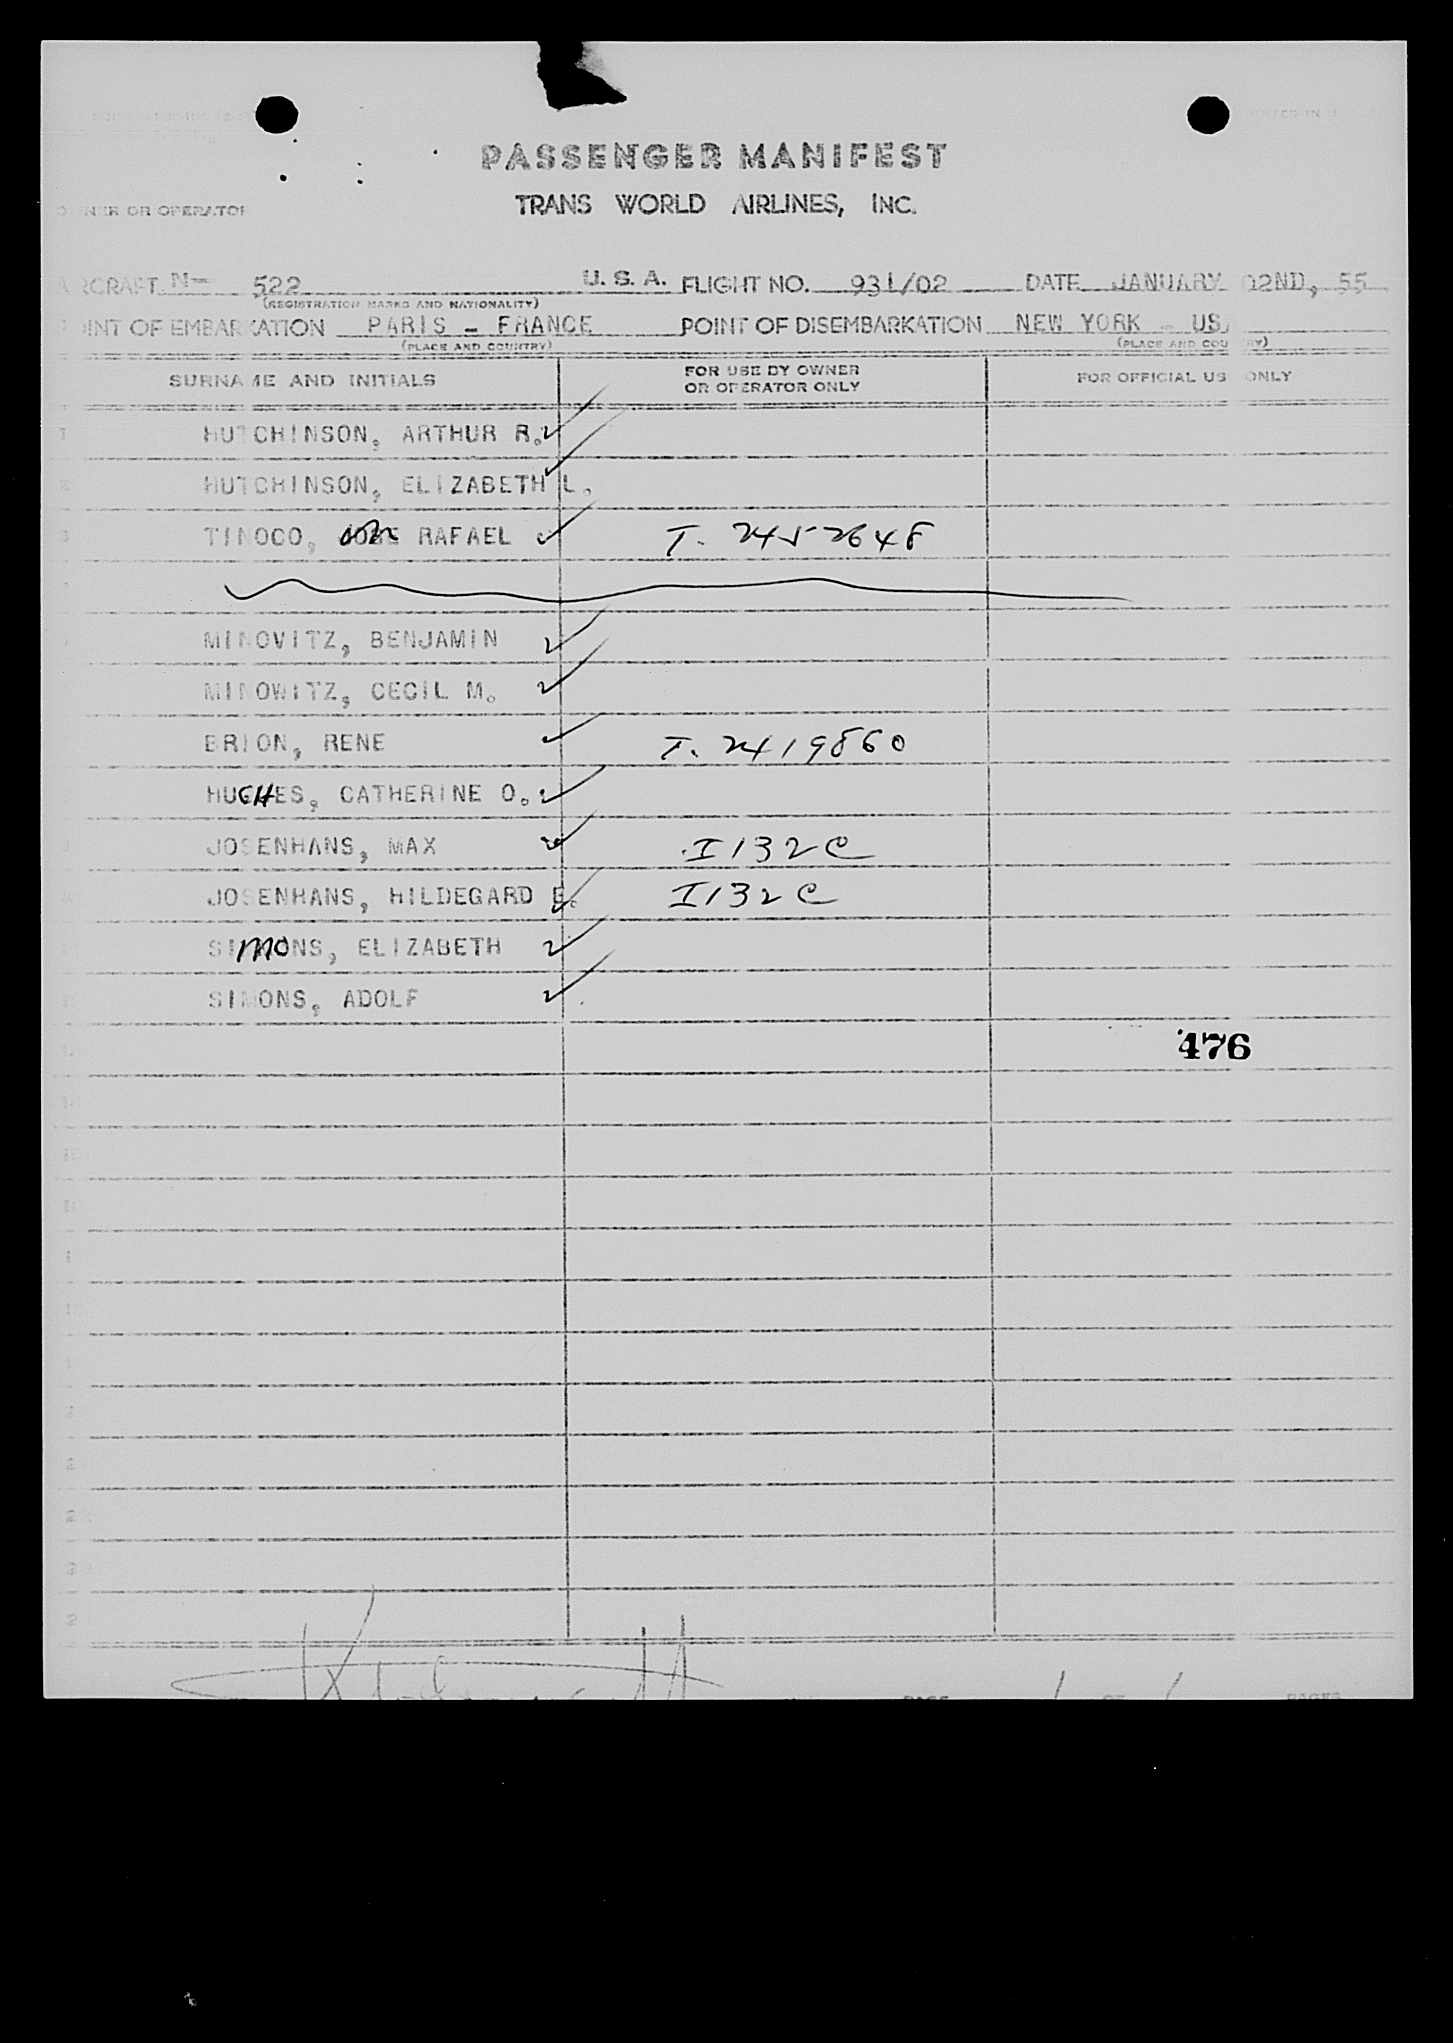 PASSENGER MANIFEST
TRANS WORLD AIRLINES, INC.
OWNER OR OPERATOR
AIRCRAFT N— 522 U. S. A. FLIGHT NO. 931/02 DATE JANUARY 02ND, 55
(REGISTRATION MARKS AND NATIONALITY)
POINT OF EMBARKATION PARIS - FRANCE POINT OF DISEMBARKATION NEW YORK - US
(PLACE AND COUNTRY) (PLACE AND COUNTRY)
SURNAME AND INITIALS FOR USE BY OWNER OR OPERATOR ONLY FOR OFFICIAL USE ONLY
HUTCHINSON, ARTHUR R.
HUTCHINSON, ELIZABETH L.
TINOCO, RAFAEL T. 2452648
MINOVITZ, BENJAMIN
MINOWITZ, CECIL M.
BRION, RENE T. 2419860
HUGHES, CATHERINE O.
JOSENHANS, MAX I132C
JOSENHANS, HILDEGARD E. I132C
SIMONS, ELIZABETH
SIMONS, ADOLF
476
PAGE 1 OF 1 PAGES